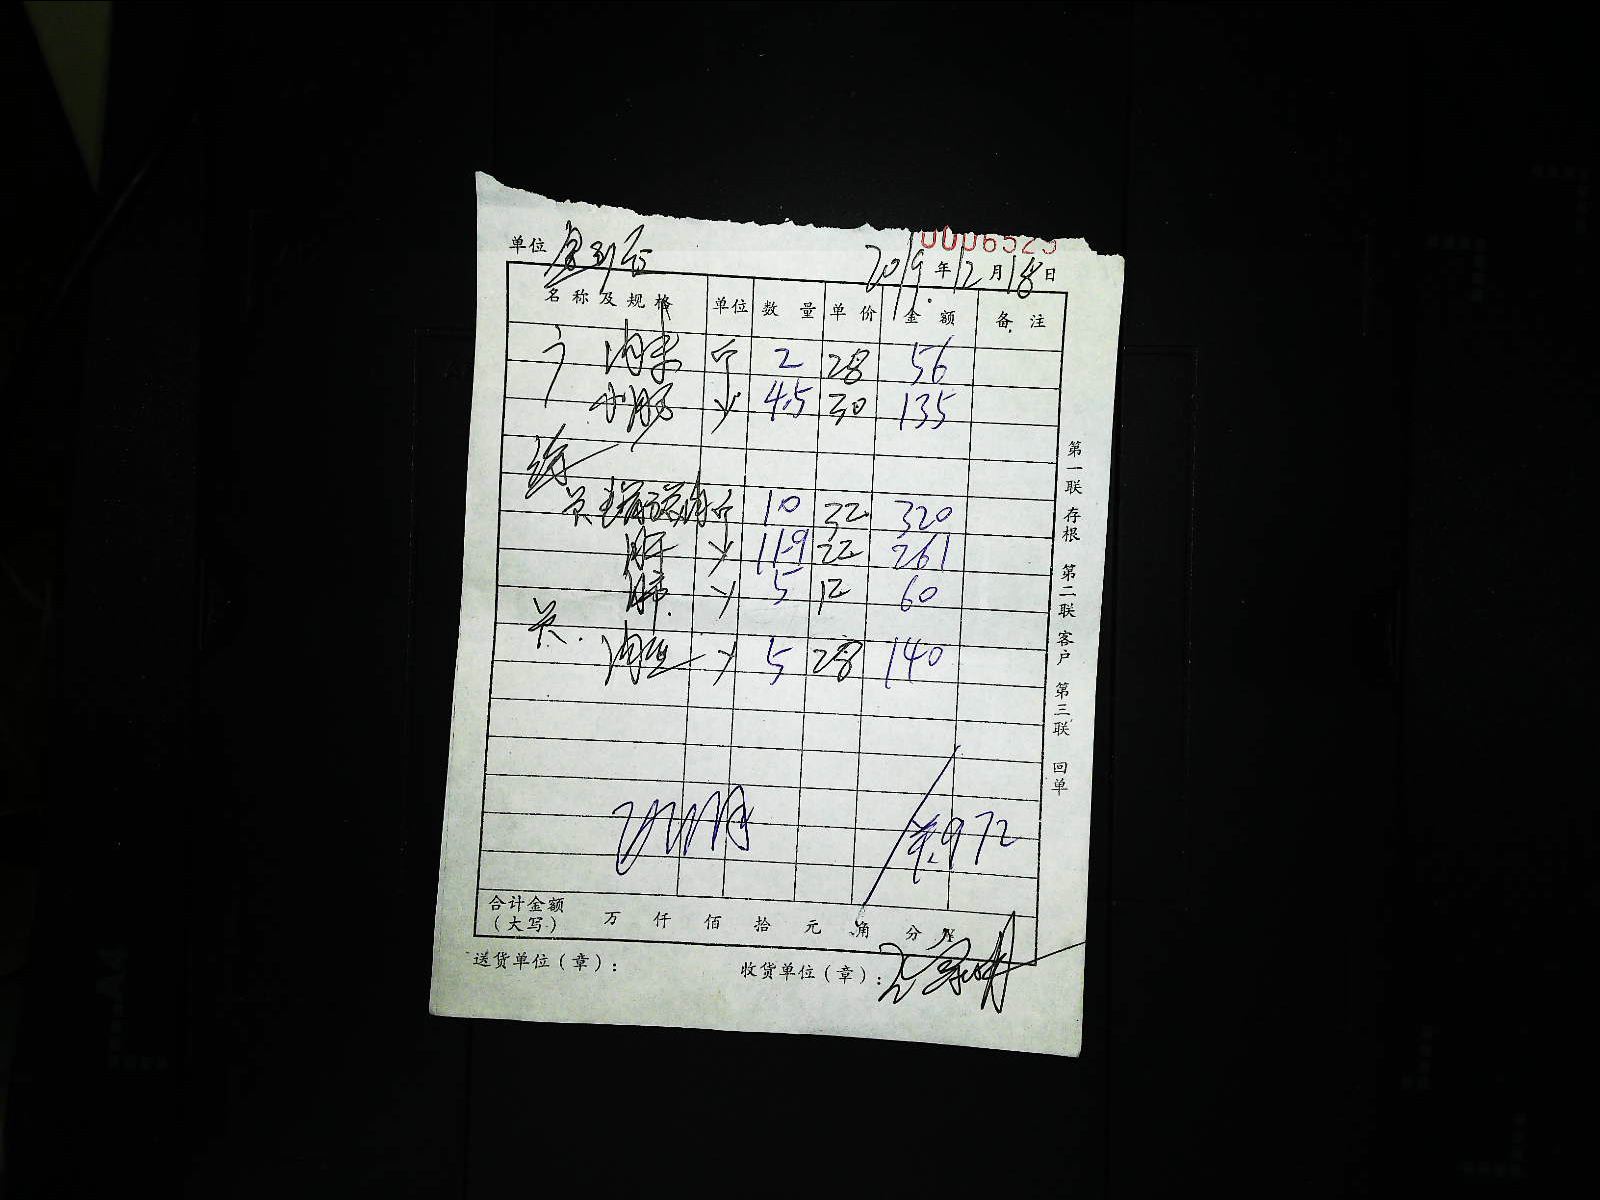 0006523
单位 2019年12月18日
名称及规格 单位 数量 单价 金额 备注
肉末 斤 2 28 56
小肠 4.5 30 135
10 32 320
肝 11.9 22 261
肺 5 12 60
肉 5 28 140
¥.972
合计金额(大写) 万 仟 佰 拾 元 角 分
送货单位(章): 收货单位(章):
第一联 存根 第二联 客户 第三联 回单